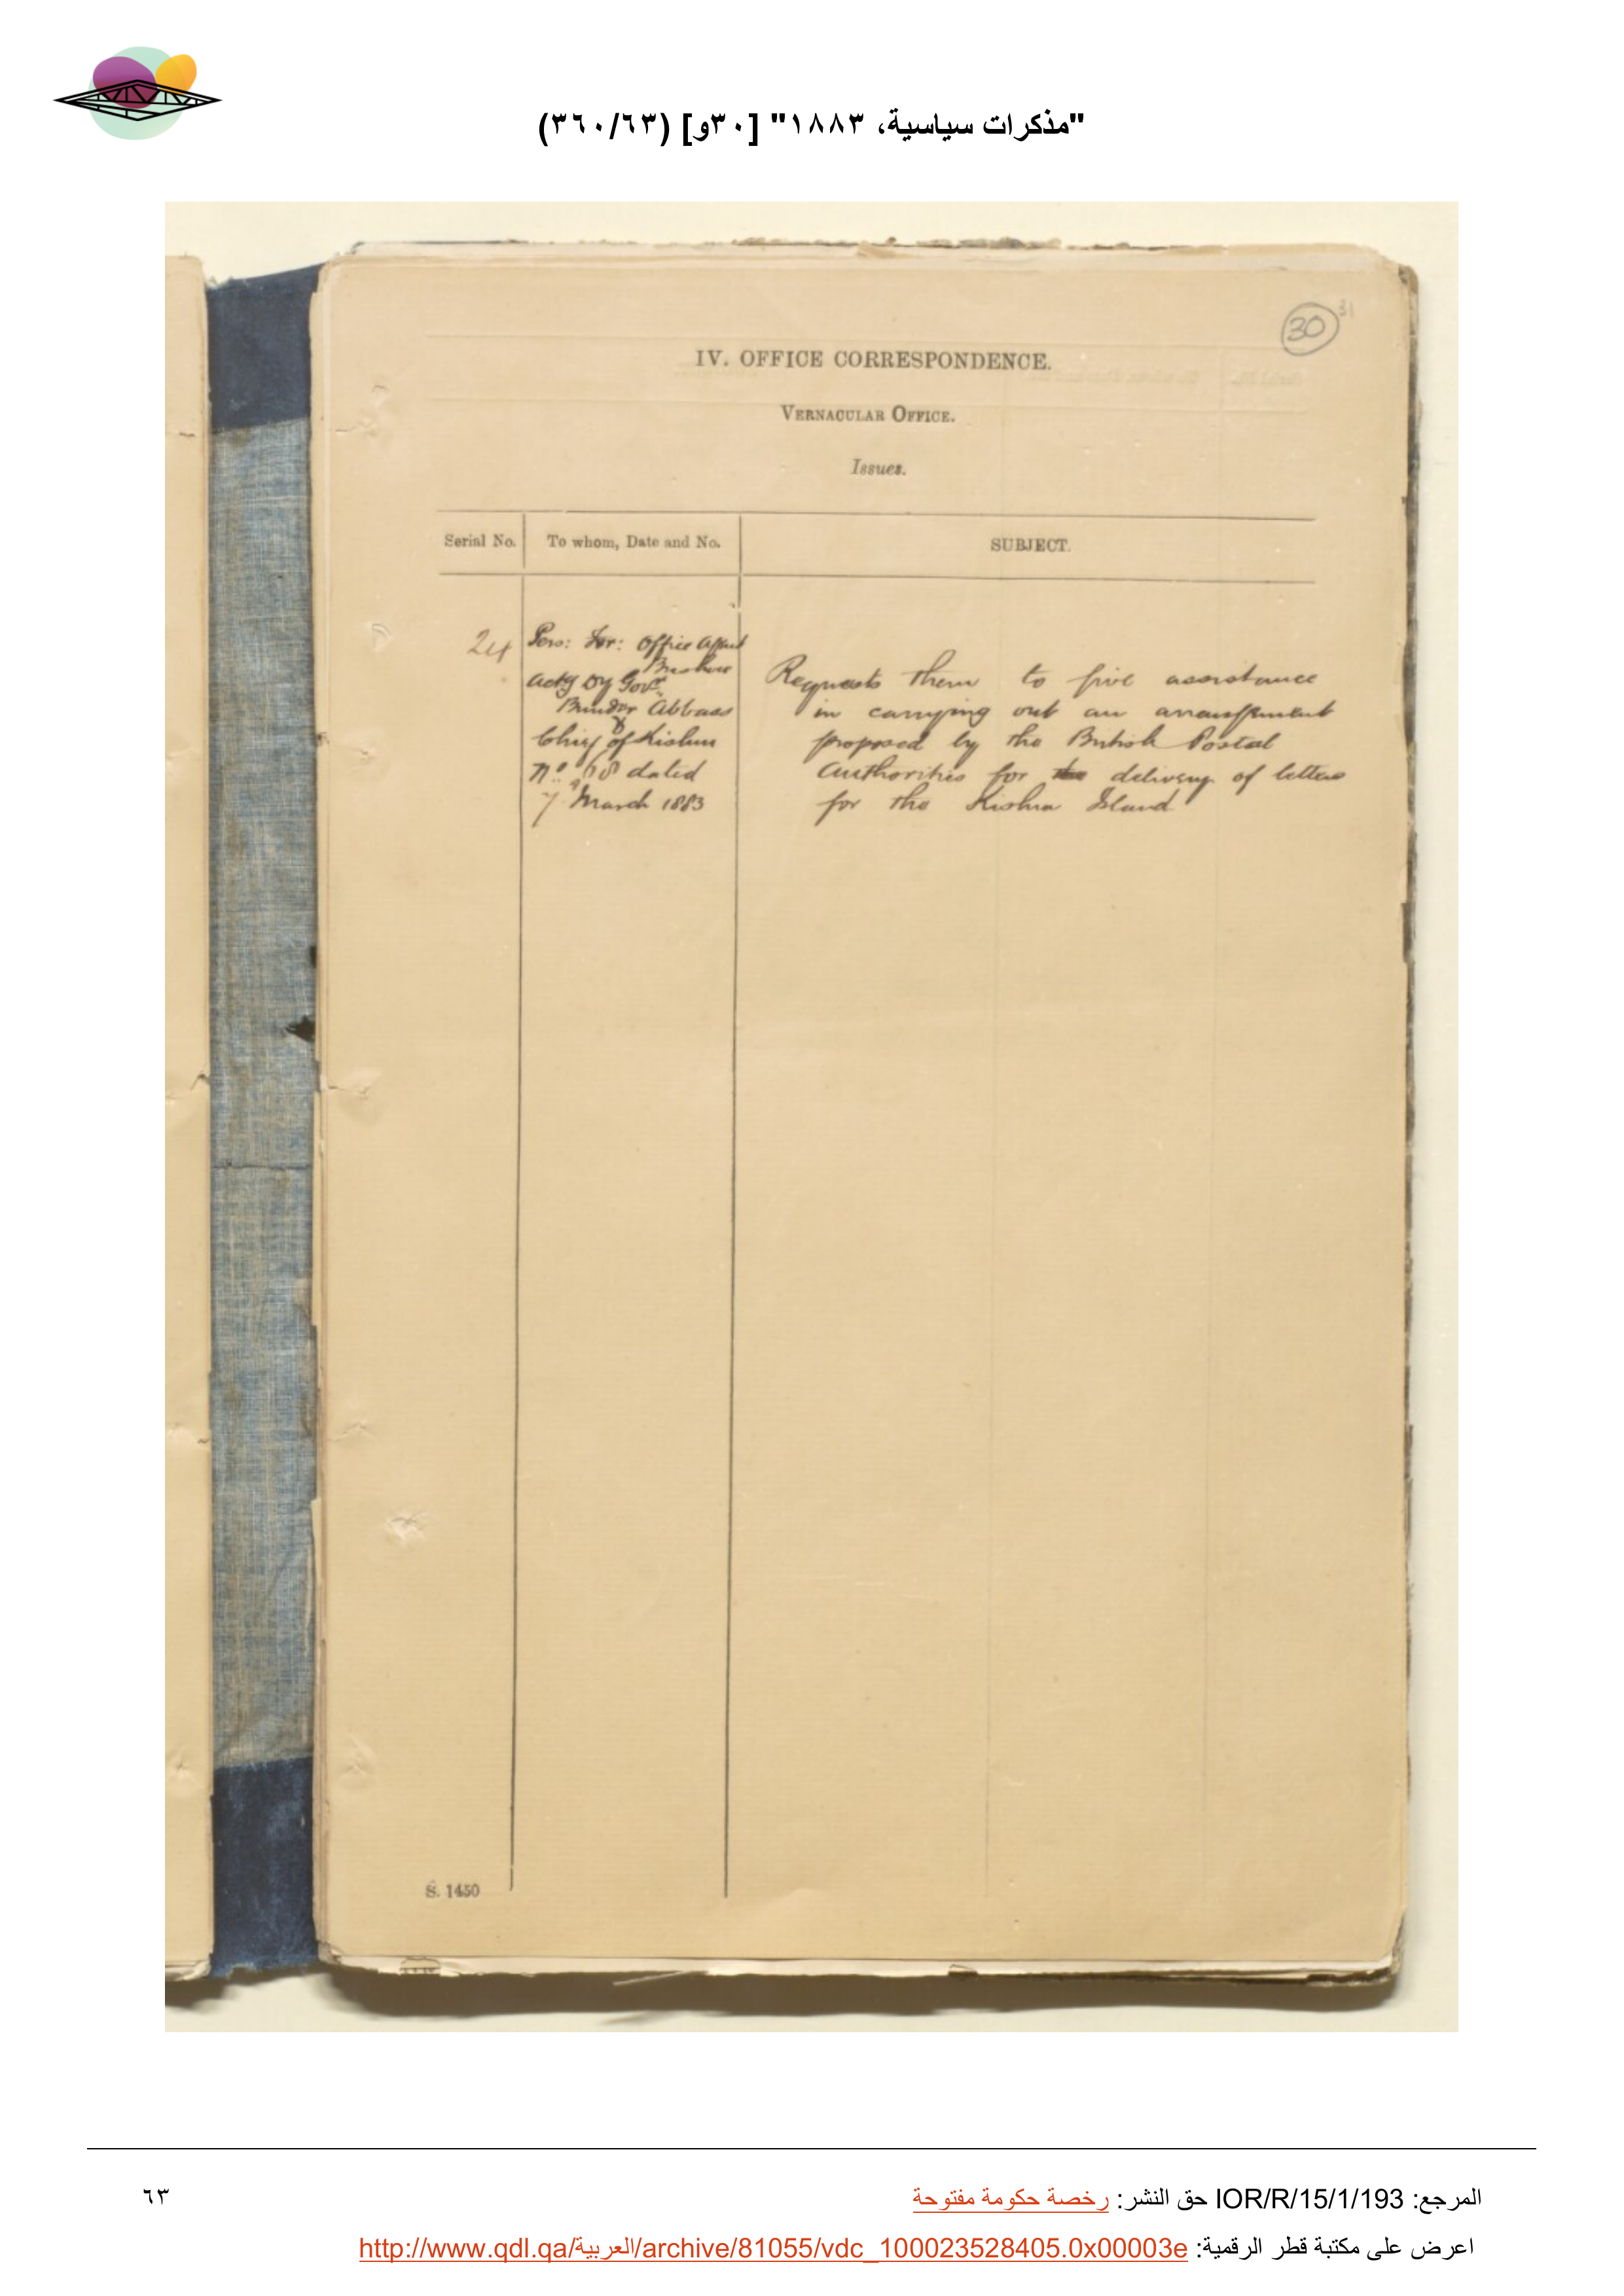 "مذكرات سياسية، ١٨٨٣" [٣٠و] (٣٦٠/٦٣)
30
31
IV. OFFICE CORRESPONDENCE.
VERNACULAR OFFICE.
Issues.
Serial No.
To whom, Date and No.
SUBJECT.
24
Pers: For: Office Agent
Bushire
actg Dy Govr
Bunder Abbass
&
Chief of Kishm
No. 68 dated
7 March 1883
Requests them to give assistance
in carrying out an arrangement
proposed by the British Postal
Authorities for the delivery of letters
for the Kishm Island
S. 1450
المرجع: IOR/R/15/1/193 حق النشر: رخصة حكومة مفتوحة
٦٣
اعرض على مكتبة قطر الرقمية: http://www.qdl.qa/العربية/archive/81055/vdc_100023528405.0x00003e